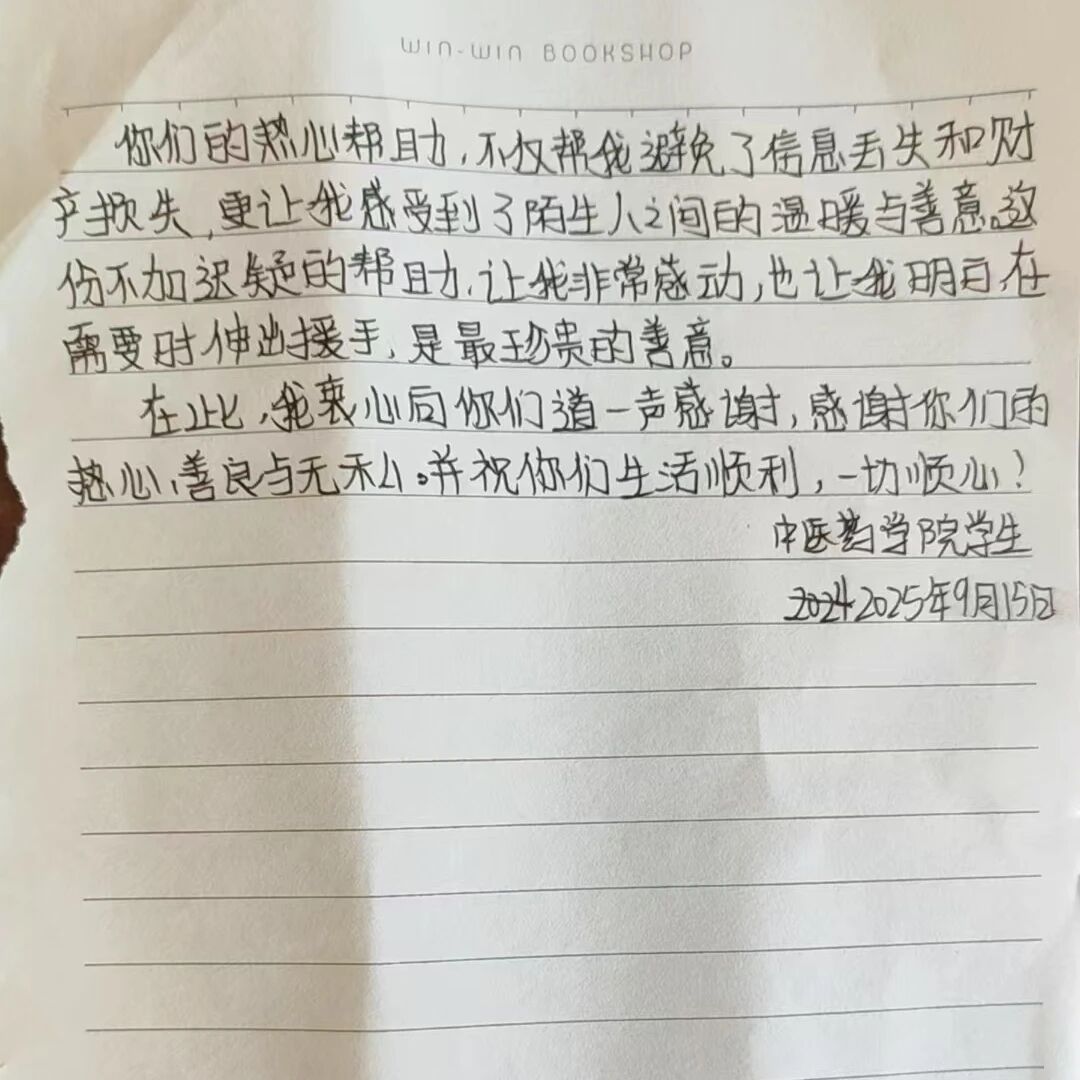 WIN-WIN BOOKSHOP
你们的热心帮助,不仅帮我避免了信息丢失和财
产损失,更让我感受到了陌生人之间的温暖与善意这
份不加迟疑的帮助,让我非常感动,也让我明白,在
需要时伸出援手,是最珍贵的善意。
在此,我衷心向你们道一声感谢,感谢你们的
热心、善良与无私。并祝你们生活顺利,一切顺心!
中医药学院学生
2024 2025年9月15日